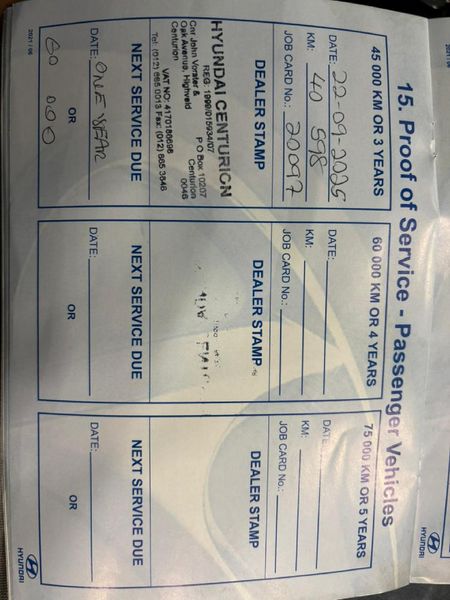 15. Proof of Service - Passenger Vehicles
45 000 KM OR 3 YEARS
DATE: 22-09-2025
KM: 40 598
JOB CARD No.: 20097
DEALER STAMP
HYUNDAI CENTURION
REG: 1999/015934/07
Cnr John Vorster &
Oak Avenue, Highveld
Centurion
P O Box 10207
Centurion
0046
VAT NO: 4170188698
Tel: (012) 665 0013 Fax: (012) 665 3646
NEXT SERVICE DUE
DATE: ONE YEAR
OR
60 000
2021 / 06
60 000 KM OR 4 YEARS
DATE:
KM:
JOB CARD No.:
DEALER STAMP
NEXT SERVICE DUE
DATE:
OR
75 000 KM OR 5 YEARS
DATE
KM:
JOB CARD No.:
DEALER STAMP
NEXT SERVICE DUE
DATE:
OR
HYUNDAI
HYUNDAI